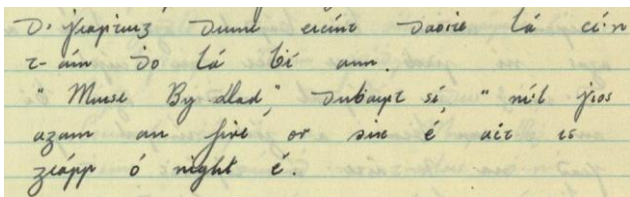 D'fiafruig duine eicint daoite lá cé'n
t-am do lá bí ann.
"Muise By dad", dubairt sí, "níl fios
agam an five or six é act is
gearr ó night é.